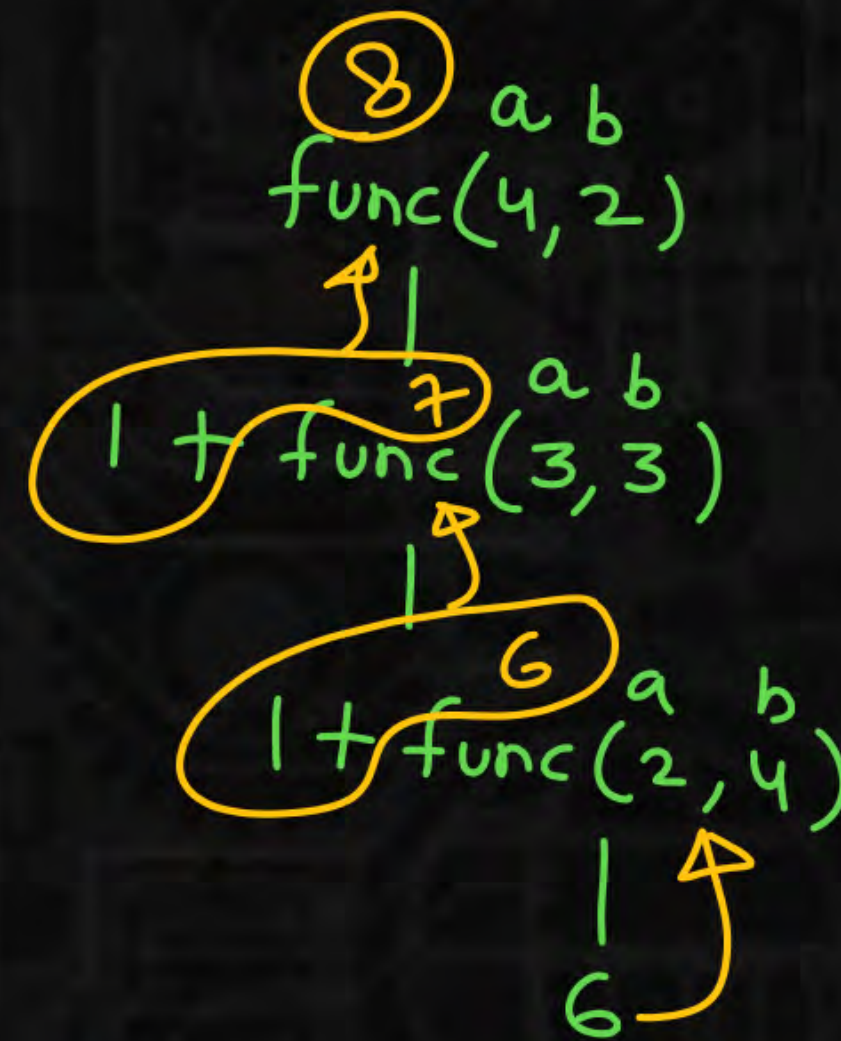 8
a b
func(4,2)
7 a b
1 + func(3,3)
6 a b
1 + func(2,4)
6